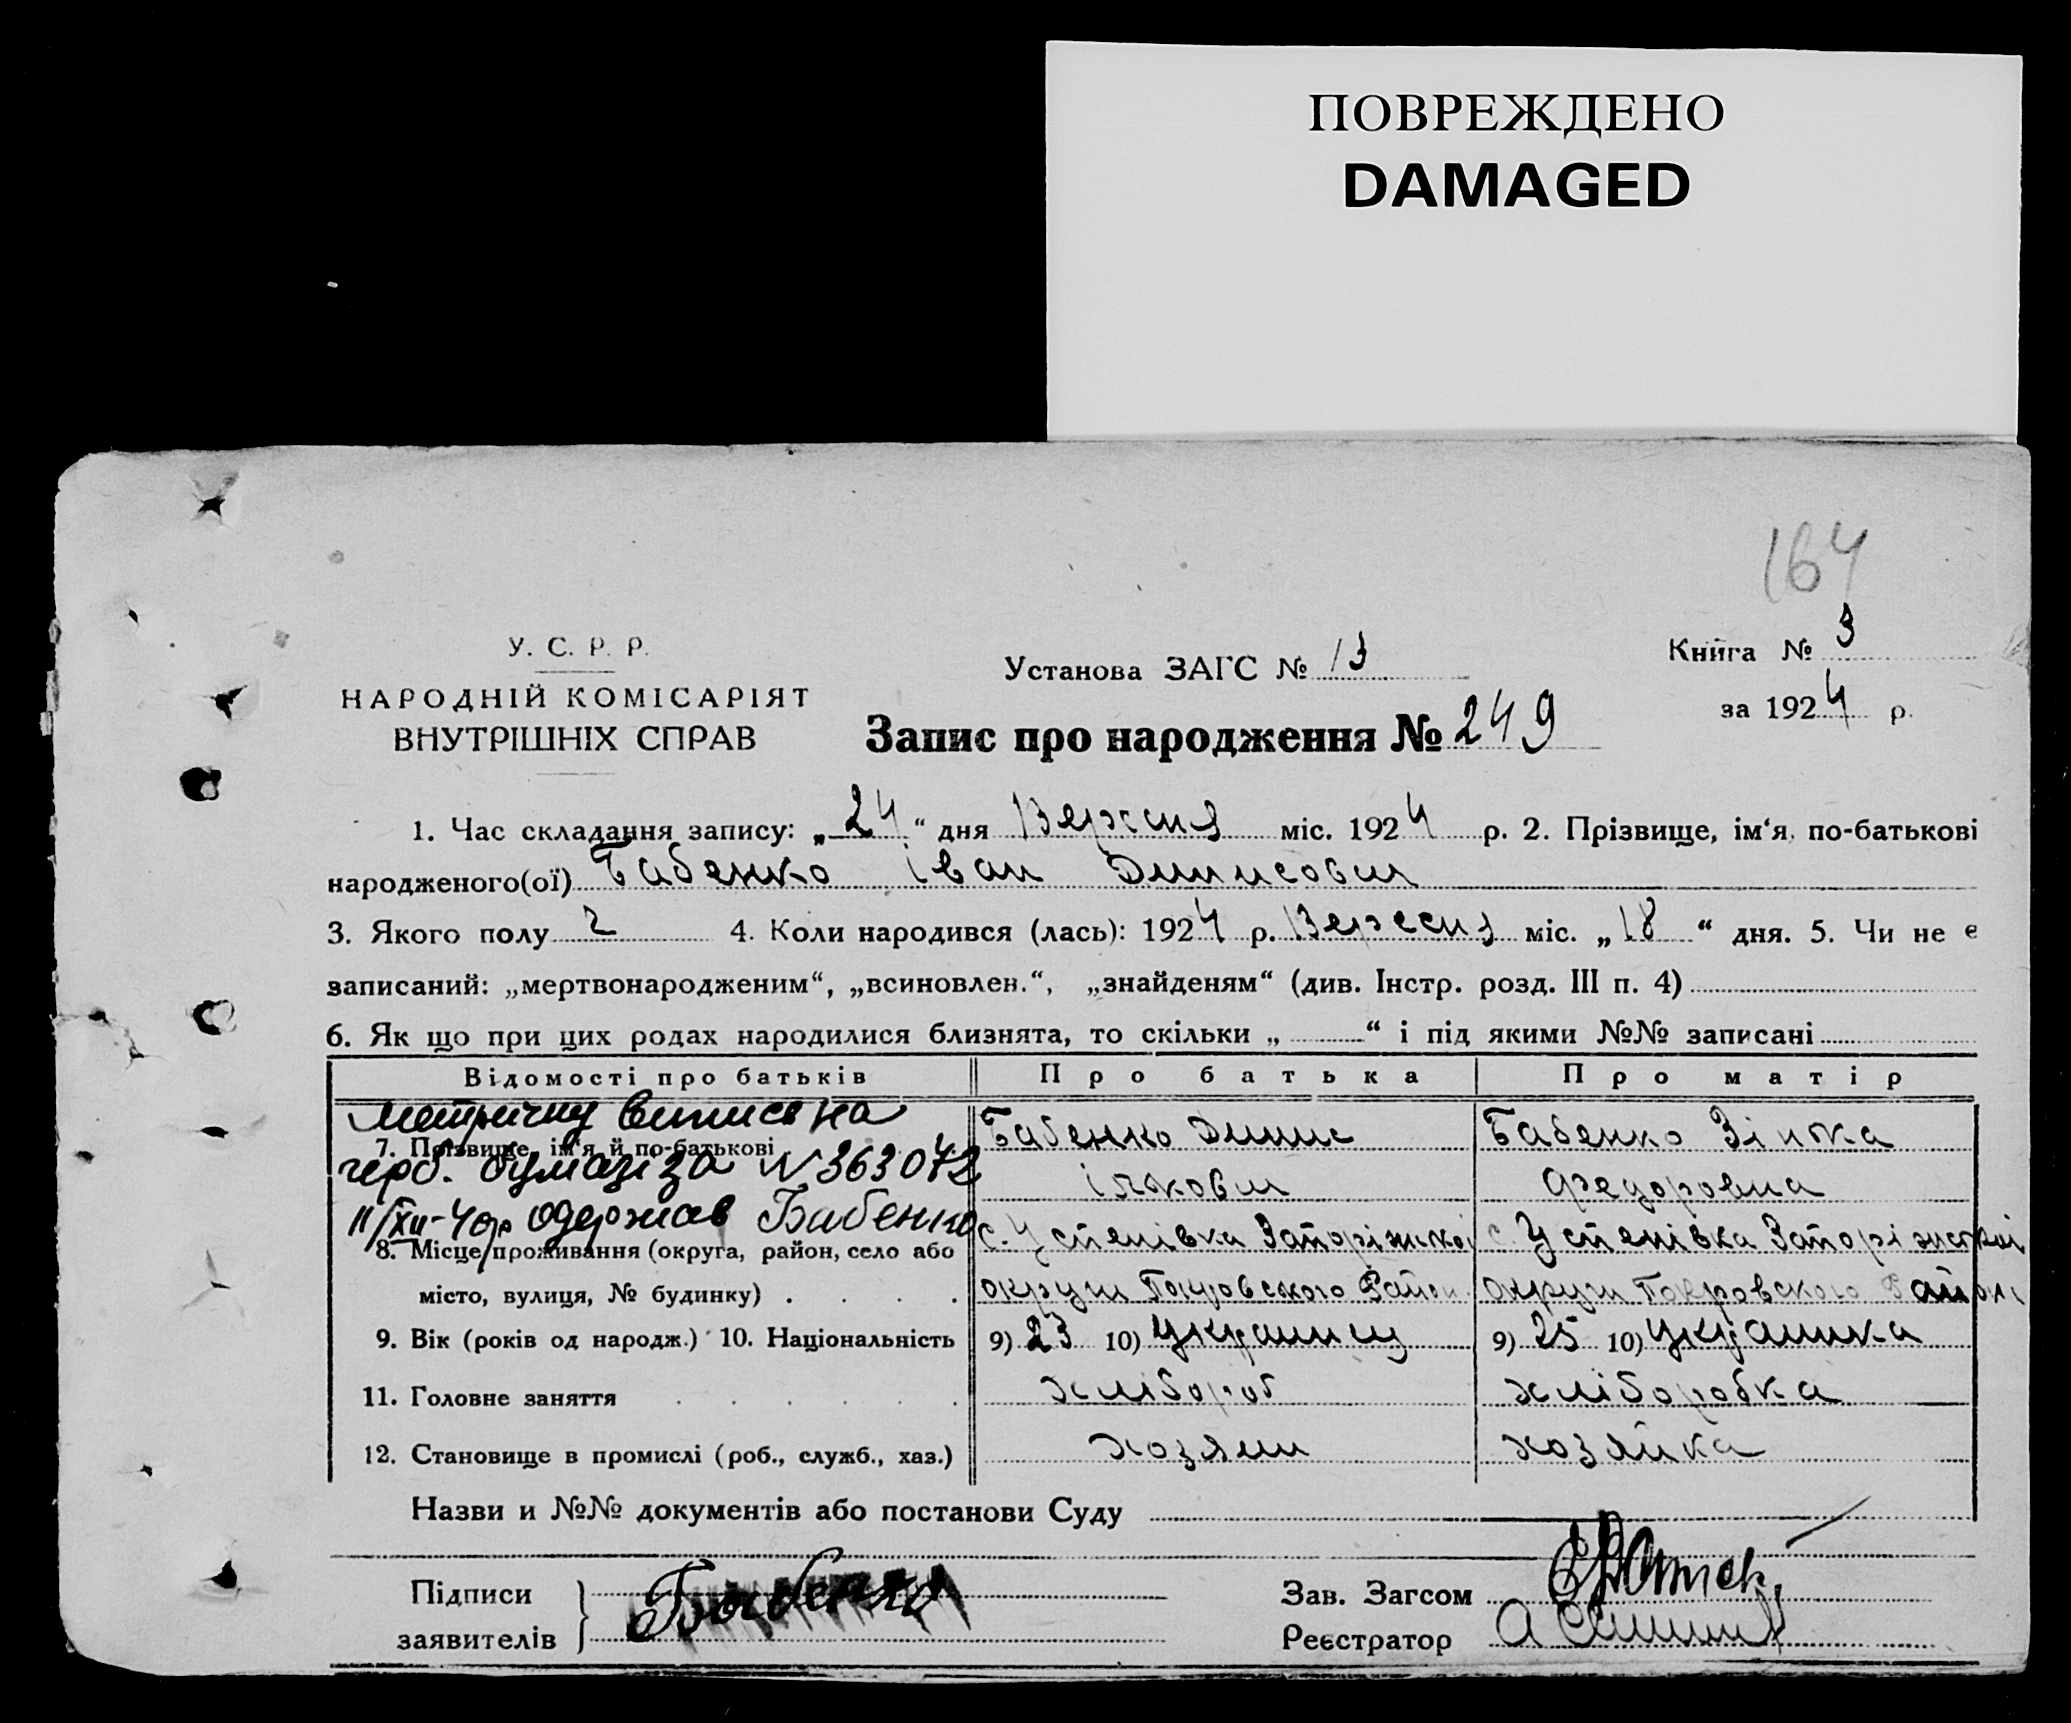 ПОВРЕЖДЕНО
DAMAGED
164
У. С. Р. Р.
НАРОДНІЙ КОМІСАРІЯТ
ВНУТРІШНІХ СПРАВ
Установа ЗАГС № 13
Книга № 3
за 1924 р.
Запис про народження № 249
1. Час складання запису: „24“ дня Вересня міс. 1924 р. 2. Прізвище, ім‘я, по-батькові
народженого(ої) Бабенко Іван Динисович
3. Якого полу ч 4. Коли народився (лась): 1924 р. Вересня міс. „18“ дня. 5. Чи не є
записаний: „мертвонародженим“, „всиновлен.“, „знайденям“ (див. Інстр. розд. III п. 4)
6. Як що при цих родах народилися близнята, то скільки „ “ і під якими №№ записані
Відомості про батьків Про батька Про матір
Метричну виписв на
7. Прізвище, ім‘я й по-батькові Бабенко Динис Бабенко Зінька
герб. бумазі за N 363072
Ількович Федоровна
11/XII-40р одержав Бабенко
8. Місце проживання (округа, район, село або с. Успенівка Запоріжської с. Успенівка Запоріжської
місто, вулиця, № будинку) округи Покровського Району округи Покровського Району
9. Вік (років од народж.) 10. Національність 9) 23 10) Українец 9) 25 10) Українка
11. Головне заняття хлібороб хліборобка
12. Становище в промислі (роб., служб., хаз.) хозяин хозяйка
Назви и №№ документів або постанови Суду
Підписи
заявителів Бабенко
Зав. Загсом
Реєстратор